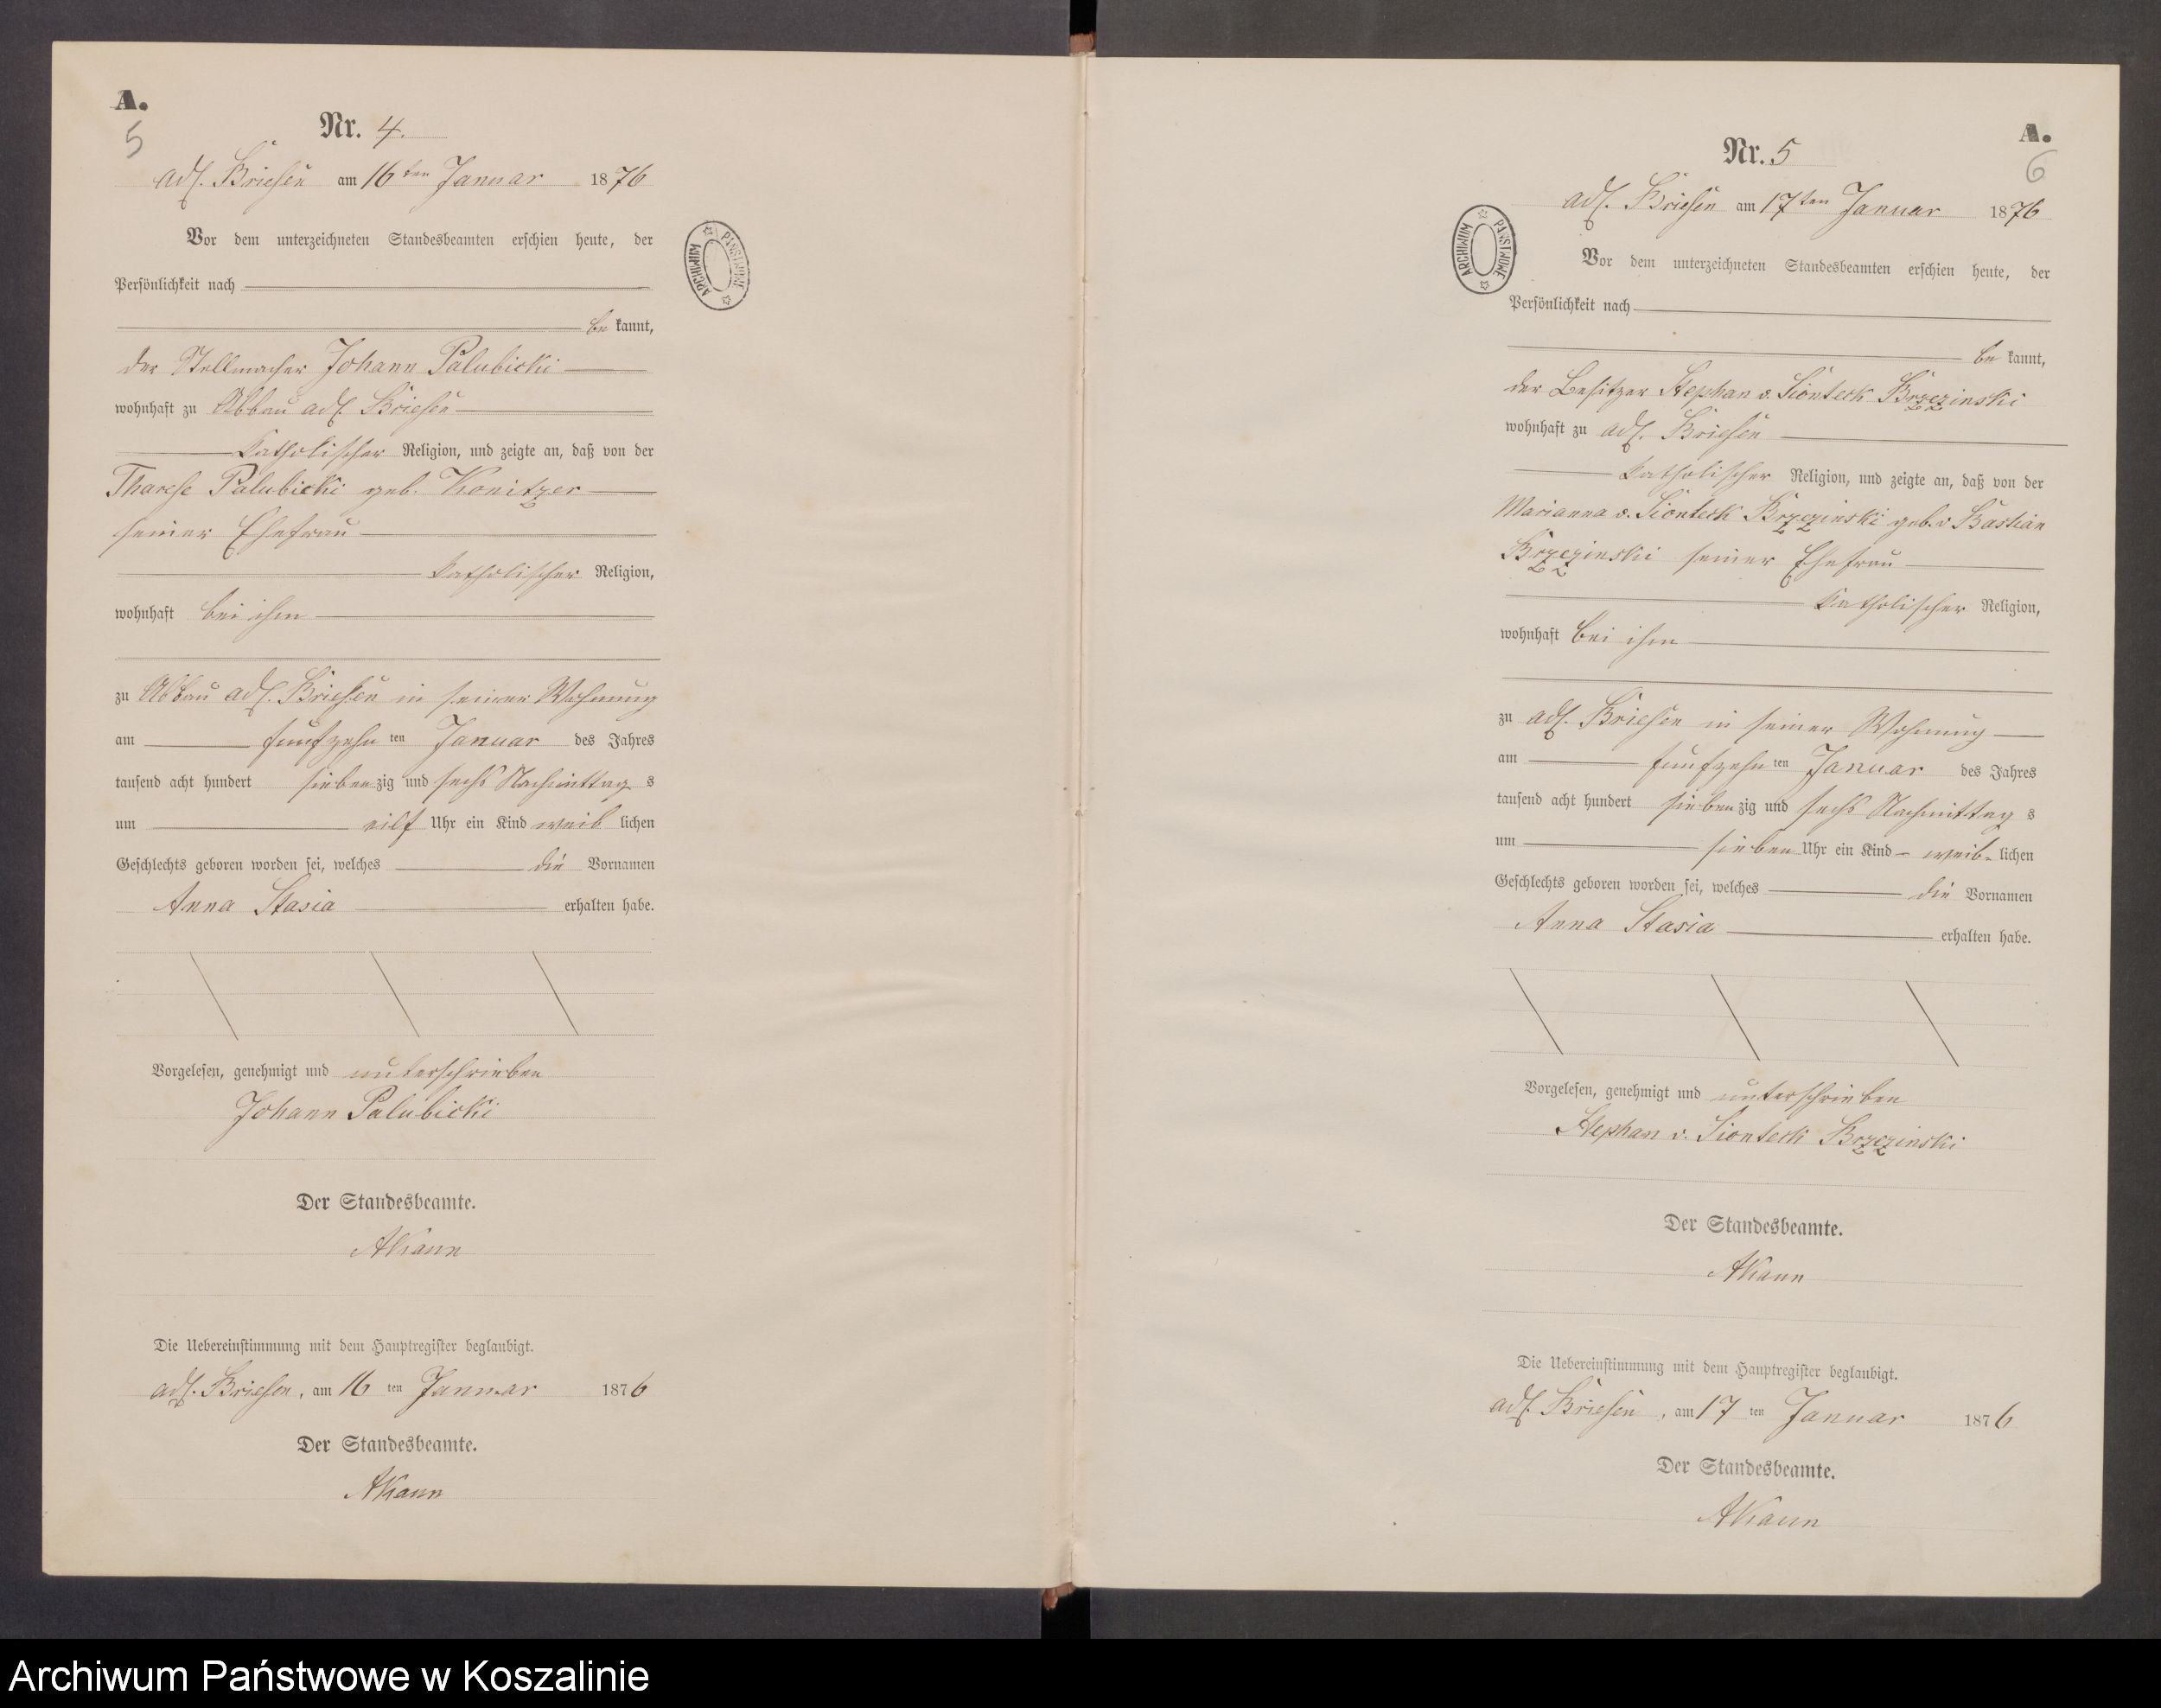 A.
5
Nr. 4.
adl. Briesen am 16ten Januar 1876
Vor dem unterzeichneten Standesbeamten erschien heute, der
Persönlichkeit nach
be kannt,
der Stellmacher Johann Palubicki
wohnhaft zu Abbau adl. Briesen
katholischer Religion, und zeigte an, daß von der
Therese Palubicki geb. Konitzer
seiner Ehefrau
katholischer Religion,
wohnhaft bei ihm
zu Abbau adl. Briesen in seiner Wohnung
am fünfzehn ten Januar des Jahres
tausend acht hundert siebenzig und sechs Nachmittag s
um eilf Uhr ein Kind weib lichen
Geschlechts geboren worden sei, welches die Vornamen
Anna Stasia erhalten habe.
Vorgelesen, genehmigt und unterschrieben
Johann Palubicki
Der Standesbeamte.
AKann
Die Uebereinstimmung mit dem Hauptregister beglaubigt.
adl. Briesen, am 16 ten Januar 1876
Der Standesbeamte.
AKann
ARCHIWUM PAŃSTWOWE
A.
6
Nr. 5
adl. Briesen am 17ten Januar 1876
Vor dem unterzeichneten Standesbeamten erschien heute, der
Persönlichkeit nach
be kannt,
der Besitzer Stephan v. Sionteck Brzezinski
wohnhaft zu adl. Briesen
katholischer Religion, und zeigte an, daß von der
Marianna v. Sionteck Brzezinski geb. v Bastian
Brzezinski seiner Ehefrau
katholischer Religion,
wohnhaft bei ihm
zu adl. Briesen in seiner Wohnung
am fünfzehn ten Januar des Jahres
tausend acht hundert siebenzig und sechs Nachmittag s
um sieben Uhr ein Kind weib- lichen
Geschlechts geboren worden sei, welches die Vornamen
Anna Stasia erhalten habe.
Vorgelesen, genehmigt und unterschrieben
Stephan v. Sionteck Brzezinski
Der Standesbeamte.
AKann
Die Uebereinstimmung mit dem Hauptregister beglaubigt.
adl. Briesen, am 17 ten Januar 1876
Der Standesbeamte.
AKann
ARCHIWUM PAŃSTWOWE
Archiwum Państwowe w Koszalinie